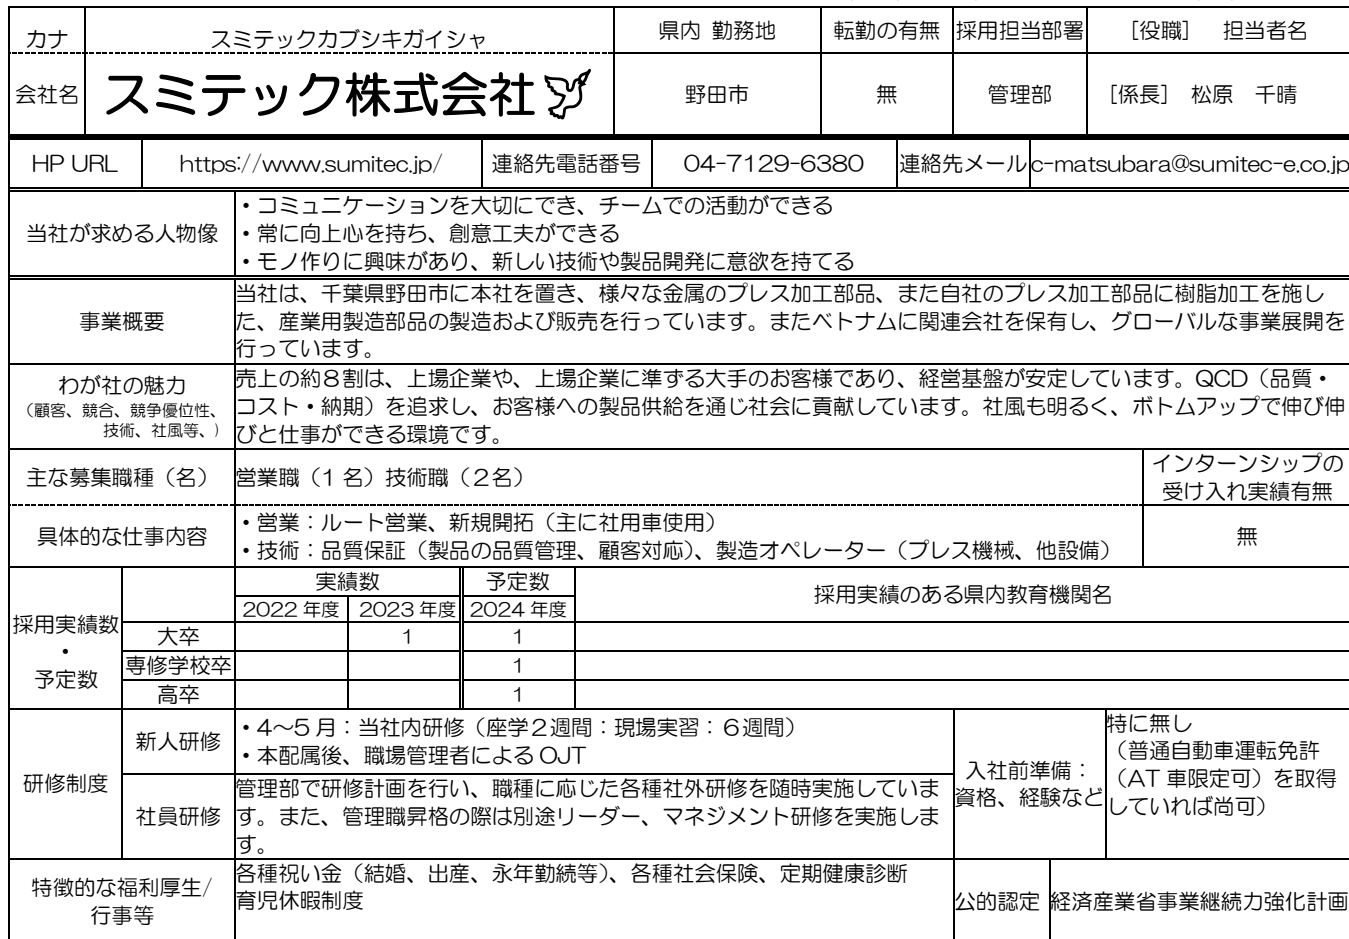 カナ スミテックカブシキガイシャ 県内 勤務地 転勤の有無 採用担当部署 [役職] 担当者名
会社名 スミテック株式会社 野田市 無 管理部 [係長] 松原 千晴
HP URL https://www.sumitec.jp/ 連絡先電話番号 04-7129-6380 連絡先メール c-matsubara@sumitec-e.co.jp
当社が求める人物像
・コミュニケーションを大切にでき、チームでの活動ができる
・常に向上心を持ち、創意工夫ができる
・モノ作りに興味があり、新しい技術や製品開発に意欲を持てる
事業概要
当社は、千葉県野田市に本社を置き、様々な金属のプレス加工部品、また自社のプレス加工部品に樹脂加工を施し
た、産業用製造部品の製造および販売を行っています。またベトナムに関連会社を保有し、グローバルな事業展開を
行っています。
わが社の魅力
(顧客、競合、競争優位性、
技術、社風等、)
売上の約8割は、上場企業や、上場企業に準ずる大手のお客様であり、経営基盤が安定しています。QCD(品質・
コスト・納期)を追求し、お客様への製品供給を通じ社会に貢献しています。社風も明るく、ボトムアップで伸び伸
びと仕事ができる環境です。
主な募集職種(名) 営業職(1名)技術職(2名)
インターンシップの
受け入れ実績有無
具体的な仕事内容
・営業:ルート営業、新規開拓(主に社用車使用)
・技術:品質保証(製品の品質管理、顧客対応)、製造オペレーター(プレス機械、他設備)
無
採用実績数
・
予定数
実績数 予定数 採用実績のある県内教育機関名
2022年度 2023年度 2024年度
大卒 1 1
専修学校卒 1
高卒 1
研修制度
新人研修
・4~5月:当社内研修(座学2週間:現場実習:6週間)
・本配属後、職場管理者によるOJT
社員研修
管理部で研修計画を行い、職種に応じた各種社外研修を随時実施していま
す。また、管理職昇格の際は別途リーダー、マネジメント研修を実施しま
す。
入社前準備:
資格、経験など
特に無し
(普通自動車運転免許
(AT車限定可)を取得
していれば尚可)
特徴的な福利厚生/
行事等
各種祝い金(結婚、出産、永年勤続等)、各種社会保険、定期健康診断
育児休暇制度
公的認定 経済産業省事業継続力強化計画